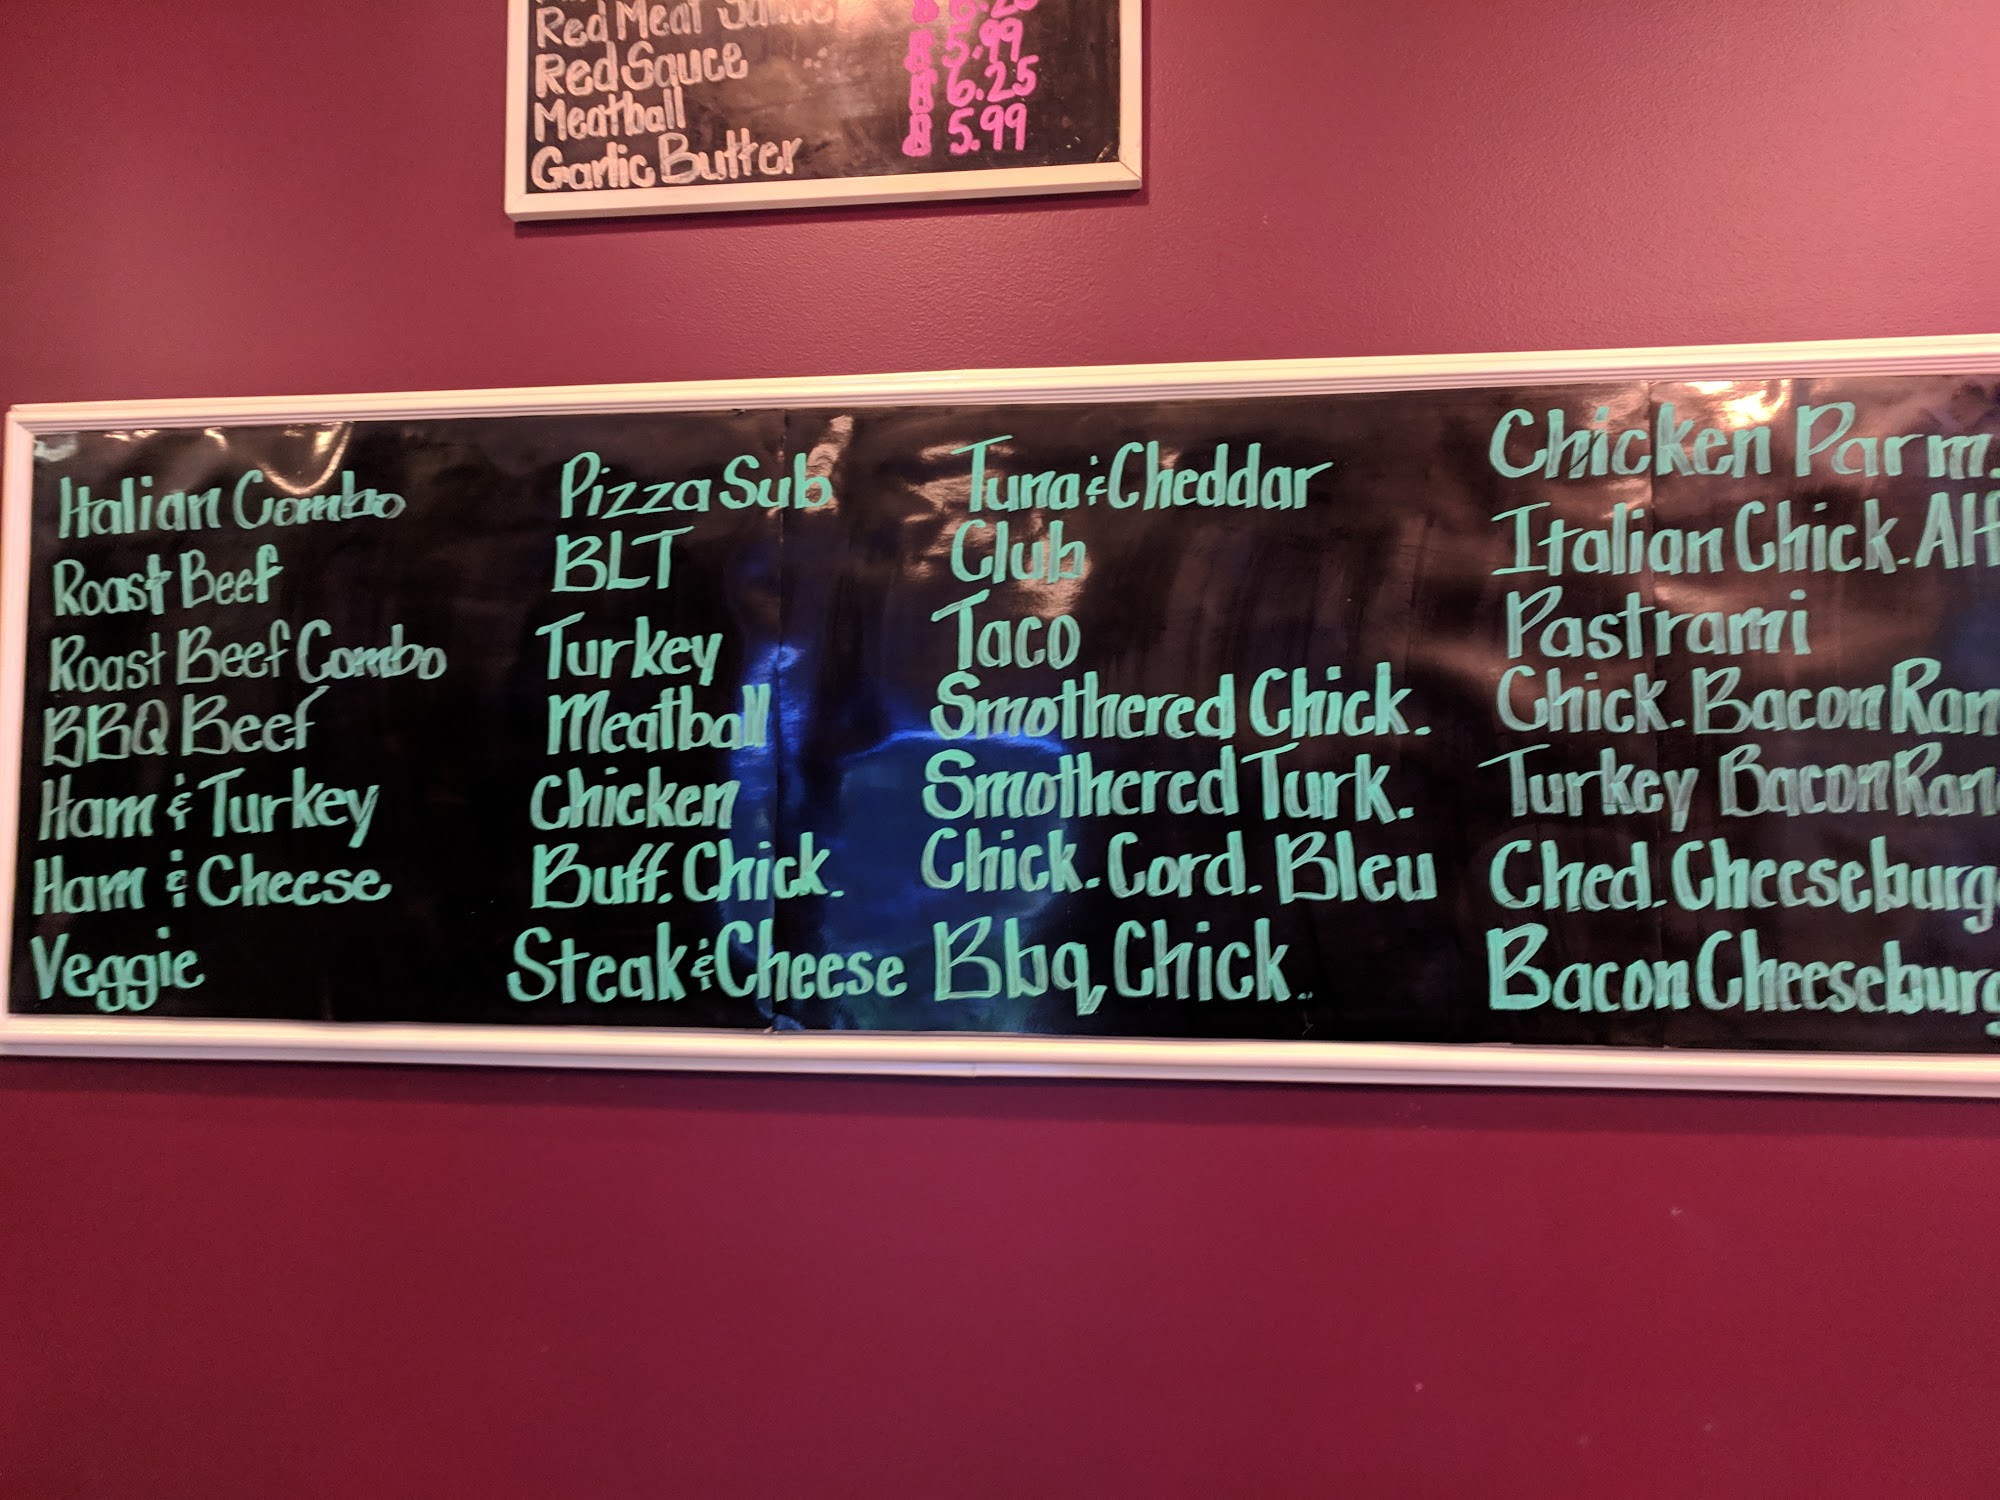 Red Meat Sauce 6.25
Red Sauce 5.99
Meatball 6.25
Garlic Butter 5.99
Italian Combo
Roast Beef
Roast Beef Combo
BBQ Beef
Ham & Turkey
Ham & Cheese
Veggie
Pizza Sub
BLT
Turkey
Meatball
Chicken
Buff. Chick.
Steak & Cheese
Tuna & Cheddar
Club
Taco
Smothered Chick.
Smothered Turk.
Chick. Cord. Bleu
Bbq Chick.
Chicken Parm.
Italian Chick. Alf
Pastrami
Chick. Bacon Ran
Turkey Bacon Ran
Ched. Cheeseburg
Bacon Cheeseburg